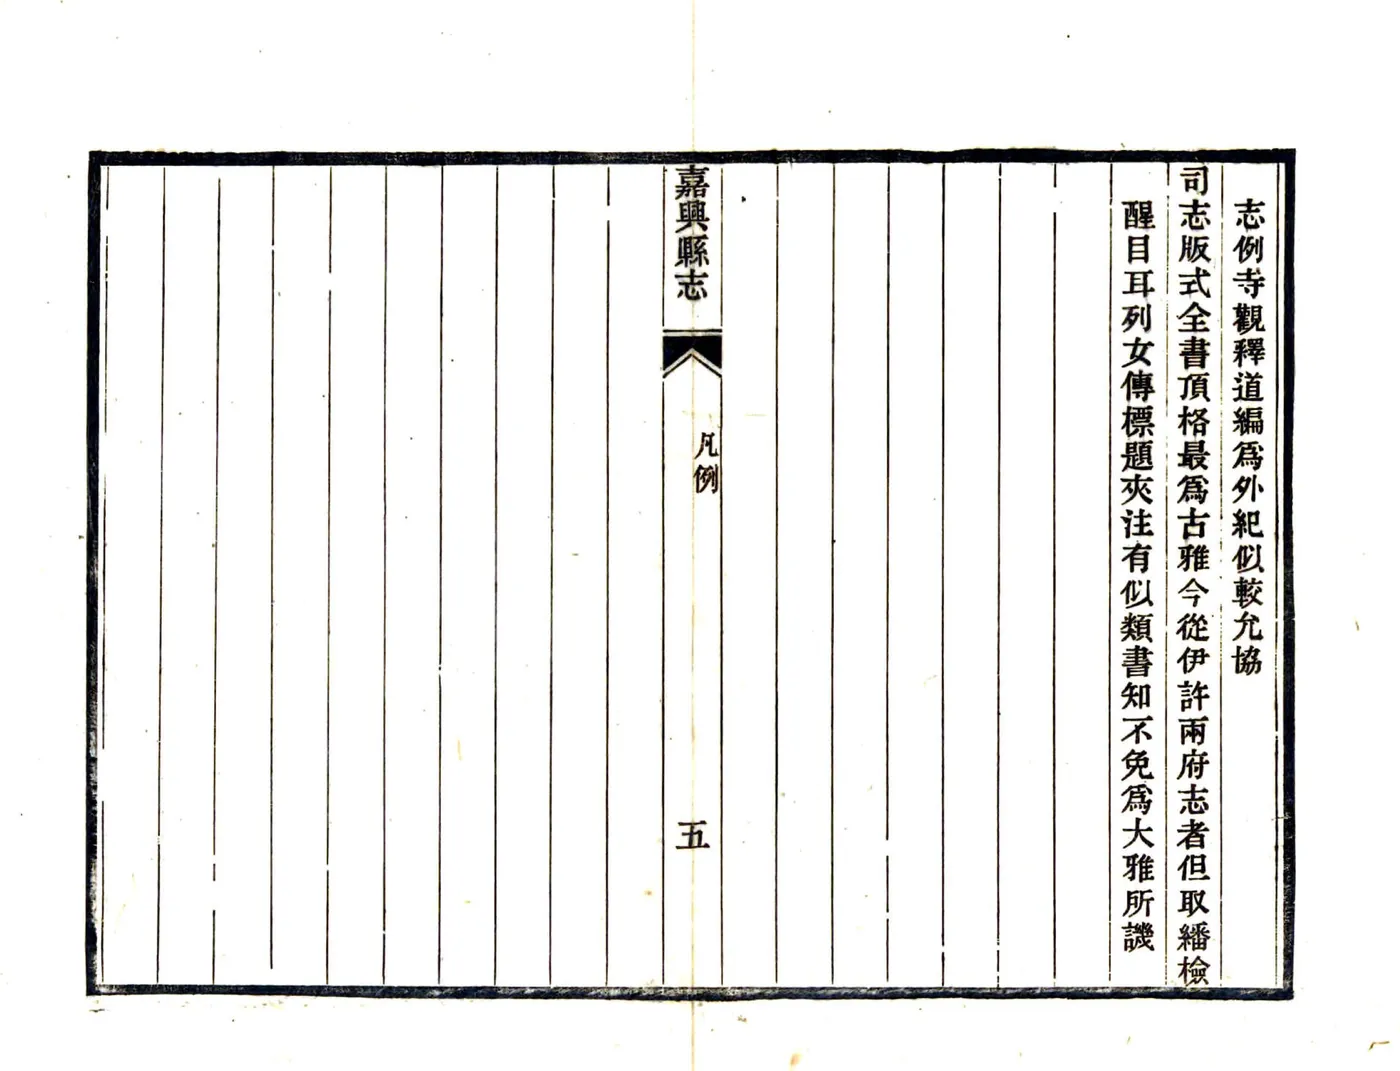 志例寺觀釋道編爲外紀似較允協
司志版式全書頂格最爲古雅今從伊許兩府志者但取繙檢
醒目耳列女傳標題夾注有似類書知不免爲大雅所譏
嘉興縣志
凡例
五